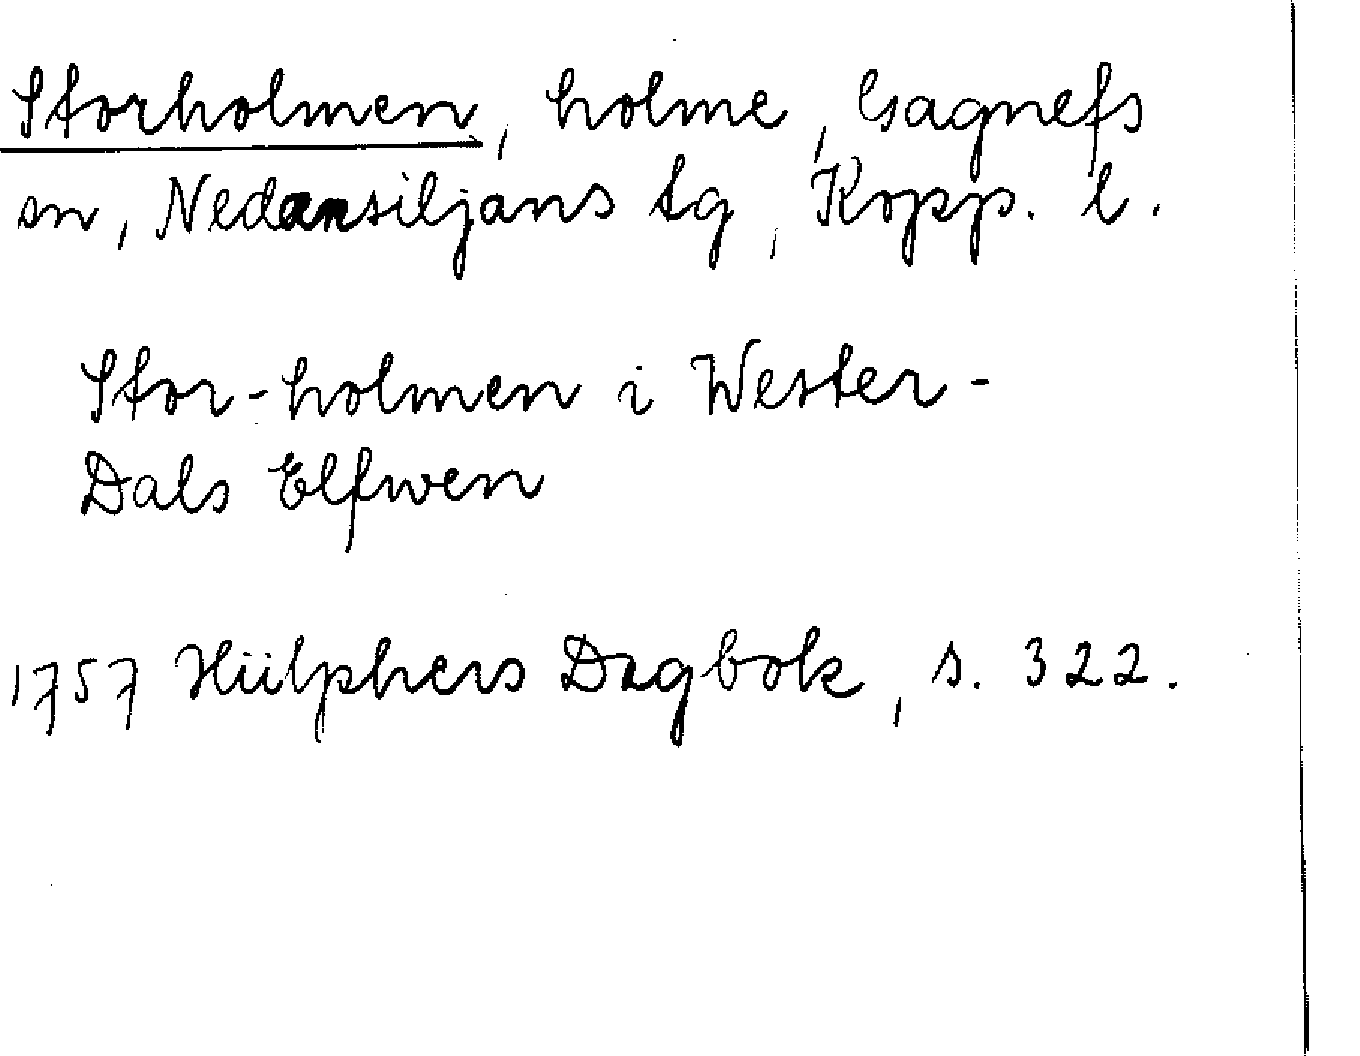 Storholmen, holme, Gagnefs
sn, Nedansiljans tg, Kopp. l.
Stor-holmen i Wester-
Dals Elfwen
1757 Hülphers Dagbok, s. 322.